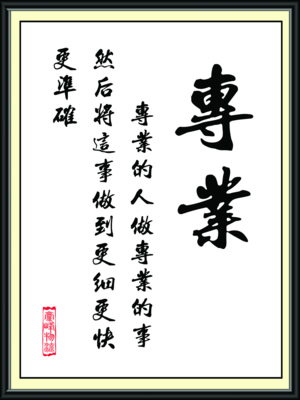 專業
專業的人做專業的事
然后將這事做到更細更快
更準確